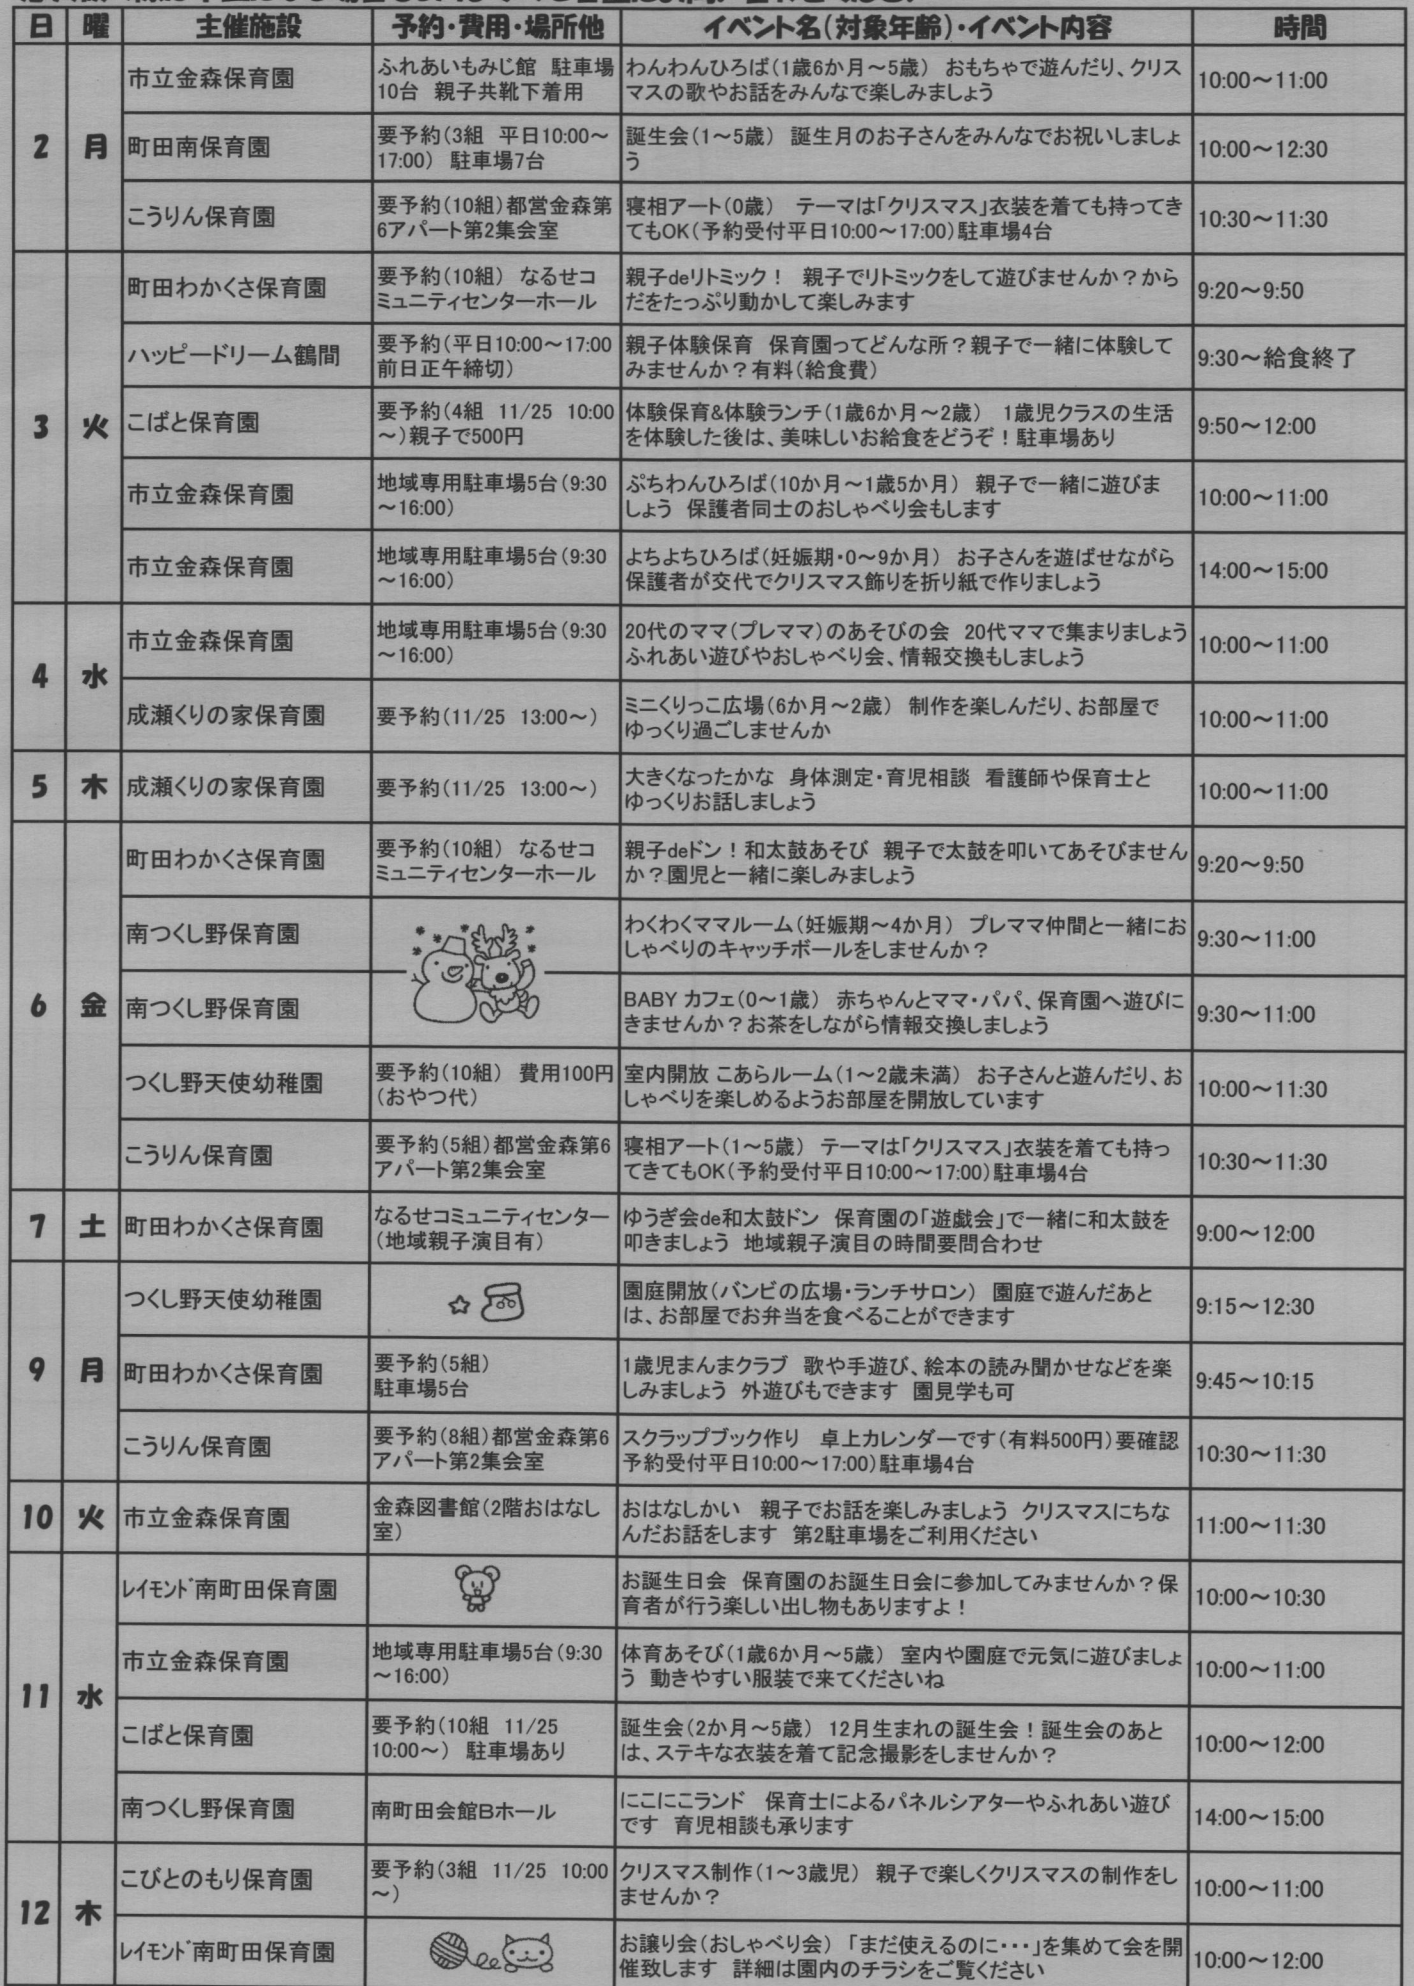 日 曜 主催施設 予約・費用・場所他 イベント名(対象年齢)・イベント内容 時間
2 月
市立金森保育園
ふれあいもみじ館 駐車場
10台 親子共靴下着用
わんわんひろば(1歳6か月～5歳) おもちゃで遊んだり、クリス
マスの歌やお話をみんなで楽しみましょう
10:00～11:00
町田南保育園
要予約(3組 平日10:00～
17:00) 駐車場7台
誕生会(1～5歳) 誕生月のお子さんをみんなでお祝いしましょ
う
10:00～12:30
こうりん保育園
要予約(10組)都営金森第
6アパート第2集会室
寝相アート(0歳) テーマは「クリスマス」衣装を着ても持ってき
てもOK(予約受付平日10:00～17:00)駐車場4台
10:30～11:30
3 火
町田わかくさ保育園
要予約(10組) なるせコ
ミュニティセンターホール
親子deリトミック! 親子でリトミックをして遊びませんか?から
だをたっぷり動かして楽しみます
9:20～9:50
ハッピードリーム鶴間
要予約(平日10:00～17:00
前日正午締切)
親子体験保育 保育園ってどんな所?親子で一緒に体験して
みませんか?有料(給食費)
9:30～給食終了
こばと保育園
要予約(4組 11/25 10:00
～)親子で500円
体験保育&体験ランチ(1歳6か月～2歳) 1歳児クラスの生活
を体験した後は、美味しいお給食をどうぞ!駐車場あり
9:50～12:00
市立金森保育園
地域専用駐車場5台(9:30
～16:00)
ぷちわんひろば(10か月～1歳5か月) 親子で一緒に遊びま
しょう 保護者同士のおしゃべり会もします
10:00～11:00
市立金森保育園
地域専用駐車場5台(9:30
～16:00)
よちよちひろば(妊娠期・0～9か月) お子さんを遊ばせながら
保護者が交代でクリスマス飾りを折り紙で作りましょう
14:00～15:00
4 水
市立金森保育園
地域専用駐車場5台(9:30
～16:00)
20代のママ(プレママ)のあそびの会 20代ママで集まりましょう
ふれあい遊びやおしゃべり会、情報交換もしましょう
10:00～11:00
成瀬くりの家保育園
要予約(11/25 13:00～)
ミニくりっこ広場(6か月～2歳) 制作を楽しんだり、お部屋で
ゆっくり過ごしませんか
10:00～11:00
5 木
成瀬くりの家保育園
要予約(11/25 13:00～)
大きくなったかな 身体測定・育児相談 看護師や保育士と
ゆっくりお話しましょう
10:00～11:00
6 金
町田わかくさ保育園
要予約(10組) なるせコ
ミュニティセンターホール
親子deドン!和太鼓あそび 親子で太鼓を叩いてあそびません
か?園児と一緒に楽しみましょう
9:20～9:50
南つくし野保育園
わくわくママルーム(妊娠期～4か月) プレママ仲間と一緒にお
しゃべりのキャッチボールをしませんか?
9:30～11:00
南つくし野保育園
BABY カフェ(0～1歳) 赤ちゃんとママ・パパ、保育園へ遊びに
きませんか?お茶をしながら情報交換しましょう
9:30～11:00
つくし野天使幼稚園
要予約(10組) 費用100円
(おやつ代)
室内開放 こあらルーム(1～2歳未満) お子さんと遊んだり、お
しゃべりを楽しめるようお部屋を開放しています
10:00～11:30
こうりん保育園
要予約(5組)都営金森第6
アパート第2集会室
寝相アート(1～5歳) テーマは「クリスマス」衣装を着ても持っ
てきてもOK(予約受付平日10:00～17:00)駐車場4台
10:30～11:30
7 土
町田わかくさ保育園
なるせコミュニティセンター
(地域親子演目有)
ゆうぎ会de和太鼓ドン 保育園の「遊戯会」で一緒に和太鼓を
叩きましょう 地域親子演目の時間要問合わせ
9:00～12:00
9 月
つくし野天使幼稚園
園庭開放(バンビの広場・ランチサロン) 園庭で遊んだあと
は、お部屋でお弁当を食べることができます
9:15～12:30
町田わかくさ保育園
要予約(5組)
駐車場5台
1歳児まんまクラブ 歌や手遊び、絵本の読み聞かせなどを楽
しみましょう 外遊びもできます 園見学も可
9:45～10:15
こうりん保育園
要予約(8組)都営金森第6
アパート第2集会室
スクラップブック作り 卓上カレンダーです(有料500円)要確認
予約受付平日10:00～17:00)駐車場4台
10:30～11:30
10 火
市立金森保育園
金森図書館(2階おはなし
室)
おはなしかい 親子でお話を楽しみましょう クリスマスにちな
んだお話をします 第2駐車場をご利用ください
11:00～11:30
11 水
レイモンド南町田保育園
お誕生日会 保育園のお誕生日会に参加してみませんか?保
育者が行う楽しい出し物もありますよ!
10:00～10:30
市立金森保育園
地域専用駐車場5台(9:30
～16:00)
体育あそび(1歳6か月～5歳) 室内や園庭で元気に遊びましょ
う 動きやすい服装で来てくださいね
10:00～11:00
こばと保育園
要予約(10組 11/25
10:00～) 駐車場あり
誕生会(2か月～5歳) 12月生まれの誕生会!誕生会のあと
は、ステキな衣装を着て記念撮影をしませんか?
10:00～12:00
南つくし野保育園
南町田会館Bホール
にこにこランド 保育士によるパネルシアターやふれあい遊び
です 育児相談も承ります
14:00～15:00
12 木
こびとのもり保育園
要予約(3組 11/25 10:00
～)
クリスマス制作(1～3歳児) 親子で楽しくクリスマスの制作をし
ませんか?
10:00～11:00
レイモンド南町田保育園
お譲り会(おしゃべり会) 「まだ使えるのに・・・」を集めて会を開
催致します 詳細は園内のチラシをご覧ください
10:00～12:00